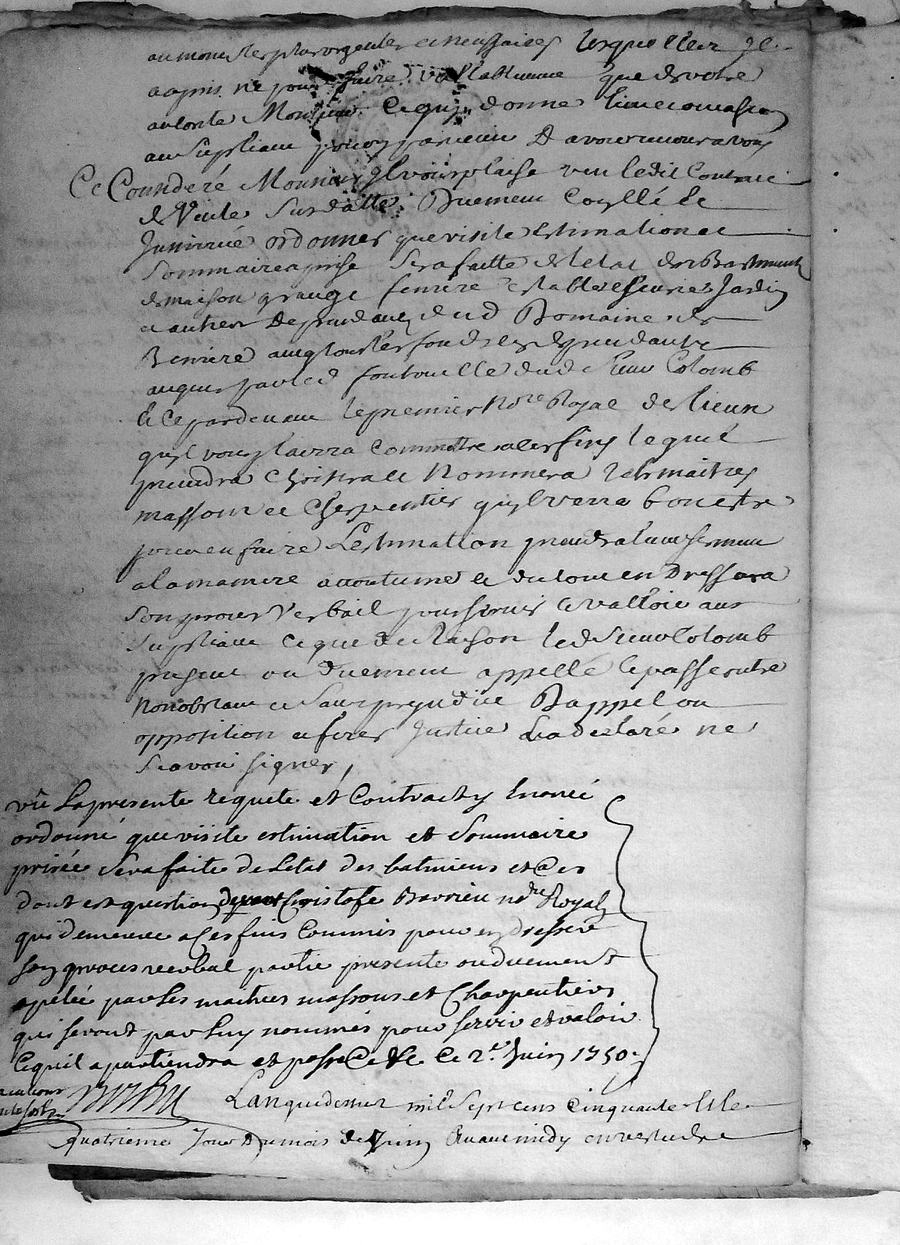 au moins les plus urgentes et necessaires lesquelles
apris ne pouvoir faire vallablement que de votre
authorite Monsieur Ce qui donne lieu et occasion
au supliant pour y parvenir D avoir recours a vous
Ce Consideré Monsieur Il vous plaise veu ledit Contract
de Vente Sus datté Duement Conllé et
Insinué ordonner que visite Estimation et
Sommaire aprise Sera faitte de letat des Bastiments
de maison grange feniere Estables Jardin
et autres Dependances dud Domaine de
Beniere
auquer par led dud Sieur Colomb
et ce pardevant le premier Nore Royal des lieux
quil vous plairra Commettre a les fins lequel
prendra Choisira et Nommera telz maitres
massons et Cherpentier quil verra bon estre
pour en faire Lestimation prendra leur serment
a la maniere accoutumé et du tout en Dressera
Son proces Verbail pour servir et valloir aux
Supliant ce que de Raison led Sieur Colomb
present ou Duement appellé le passé outre
Nonobstant et Sans prejudice D appel ou
opposition et ferez Justice La declaré ne
Scavoir signer,
vû La presente requete et Contract y Enoncé
ordonné que visite estimation et Sommaire
prisée Sera faite de Letat des batimens et @es
dont est question devant Cristofe Barrieu nore Royal
qui demeure a ces fins Commis pour en dresser
son proces verbal partie presente ou duement
apélée par Les maitres massons et Charpentiers
qui seront par luy nommés pour servir et valoir
Ce quil apartiendra et Ce 2e Juin 1750.
Lan mil Sept cens Cinquante et Le
quatrieme Jour Du mois de Juin Avant midy en vertu de